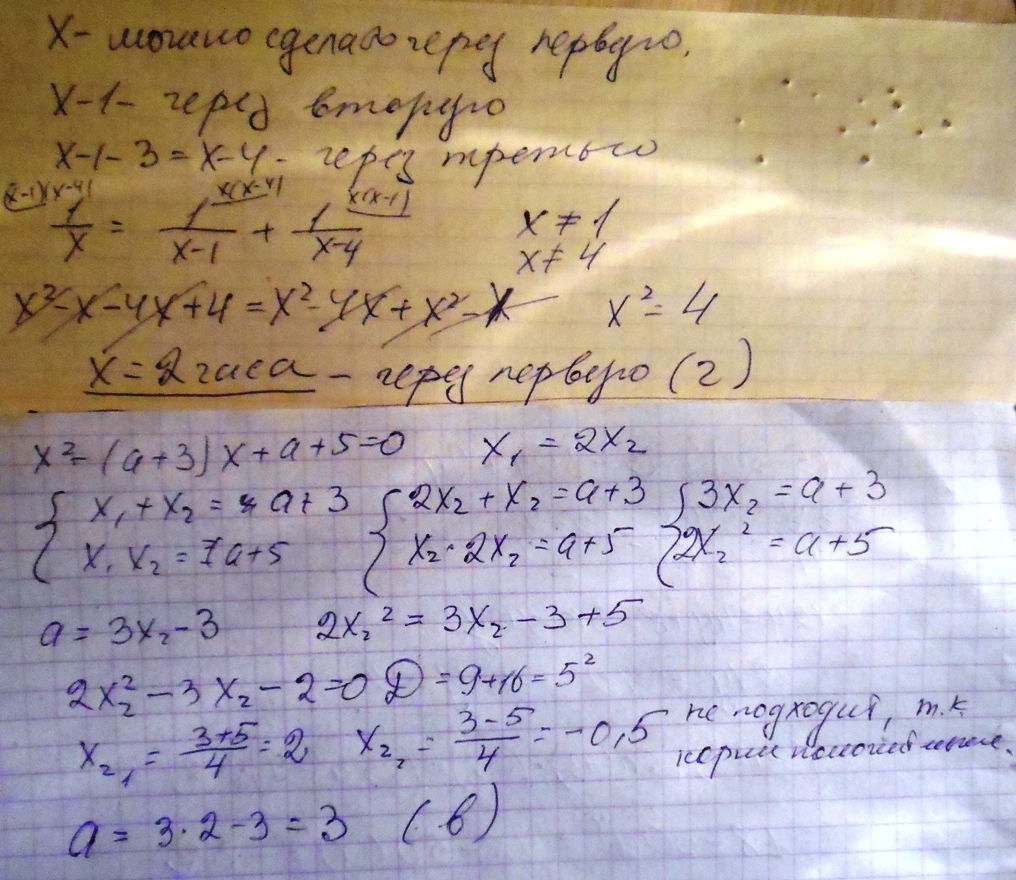 x - можно сделать через первую.
x-1- через вторую
x-1-3=x-4- через третью
(x-1)(x-4) x(x-4) x(x-1)
1/x = 1/(x-1) + 1/(x-4) x≠1
x≠4
x²-x-4x+4=x²-4x+x²-x x²=4
x=2 часа - через первую (г)
x²-(a+3)x+a+5=0 x₁=2x₂
{ x₁+x₂=a+3 { 2x₂+x₂=a+3 { 3x₂=a+3
x₁x₂=a+5 x₂·2x₂=a+5 2x₂²=a+5
a=3x₂-3 2x₂²=3x₂-3+5
2x₂²-3x₂-2=0 D=9+16=5²
x₂₁=(3+5)/4=2 x₂₂=(3-5)/4=-0,5 не подходит, т.к.
корни
a=3·2-3=3 (в)